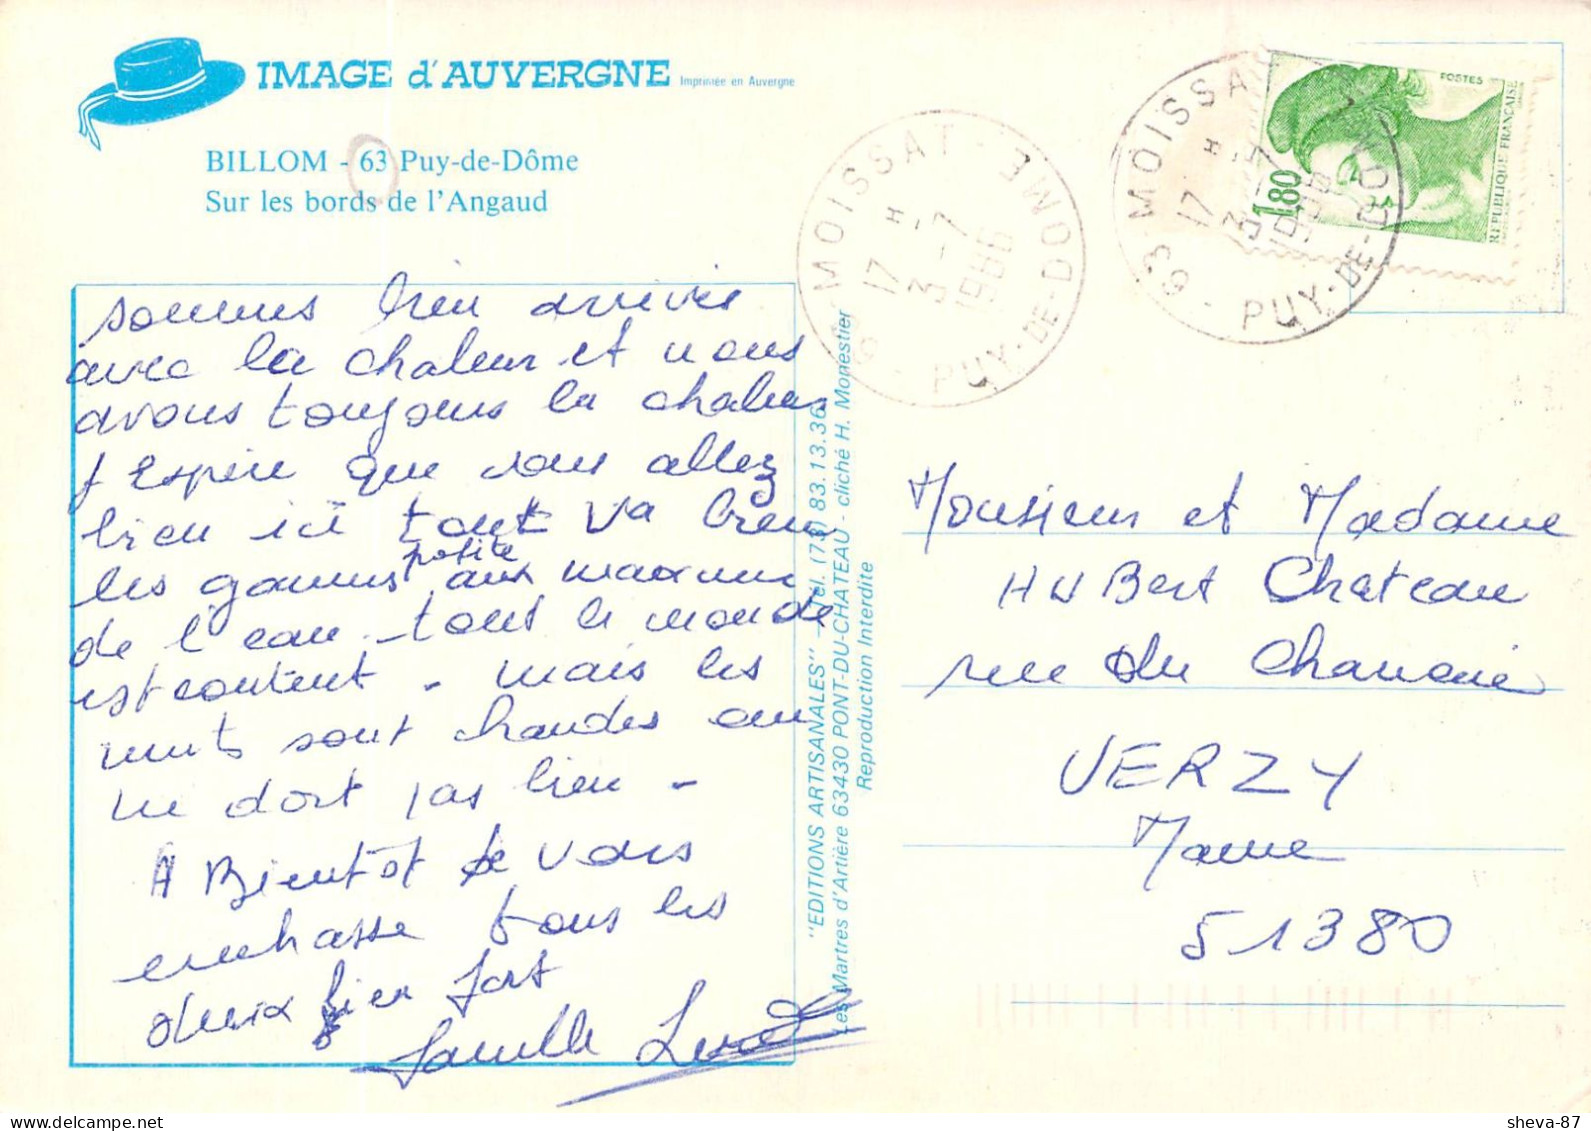 IMAGE d'AUVERGNE Imprimée en Auvergne
BILLOM - 63 Puy-de-Dôme
Sur les bords de l'Angaud
sommes bien arrivés
avec la chaleur et nous
avons toujours la chaleur
j'Espère que vous allez
bien ici tout va bien
petite
les gamins aux maximum
de l'eau - tous le monde
est content - mais les
nuits sont chaudes on
ne dort pas bien -
A Bientôt Je vous
embrasse tous les
deux bien fort
famille
"EDITIONS ARTISANALES" - Tél. (73) 83.13.36
Les Martres d'Artière 63430 PONT-DU-CHATEAU - cliché H. Monestier
Reproduction Interdite
63 MOISSAT - PUY-DE-DOME
17 H
3 - 7
1986
63 MOISSAT - PUY-DE-DOME
17 H
3 - 7
1986
POSTES
1,80
REPUBLIQUE FRANÇAISE
Monsieur et Madame
HUBert Chateau
rue du Chanoine
VERZY
Marne
51380
sheva-87